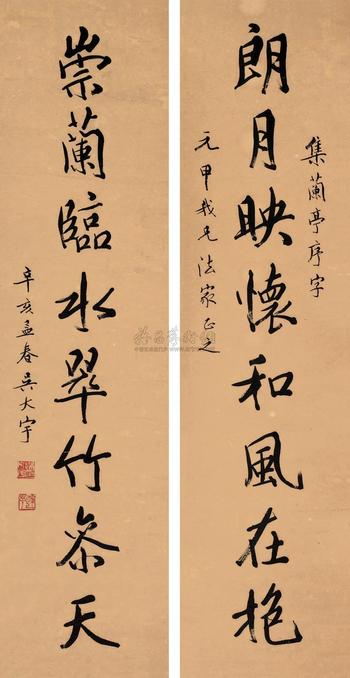 集蘭亭序字
朗月映懷和風在抱
元甲我兄法家正之
崇蘭臨水翠竹參天
辛亥孟春吳大宇